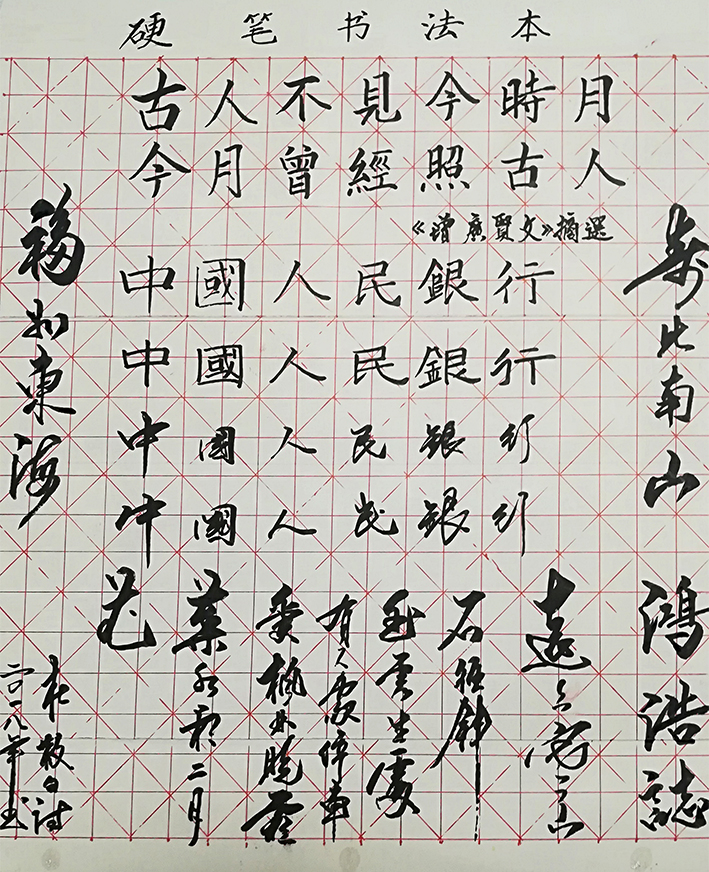 硬笔书法本
古人不見今時月
今月曾經照古人
《增廣賢文》摘選
中國人民銀行
中國人民銀行
中國人民銀行
中國人民銀行
壽比南山
福如東海
鴻浩誌
遠上寒山
石徑斜
白雲生處
有人家停車
愛楓林晚霜
葉紅於二月
花
杜牧的詩
二〇一八年書